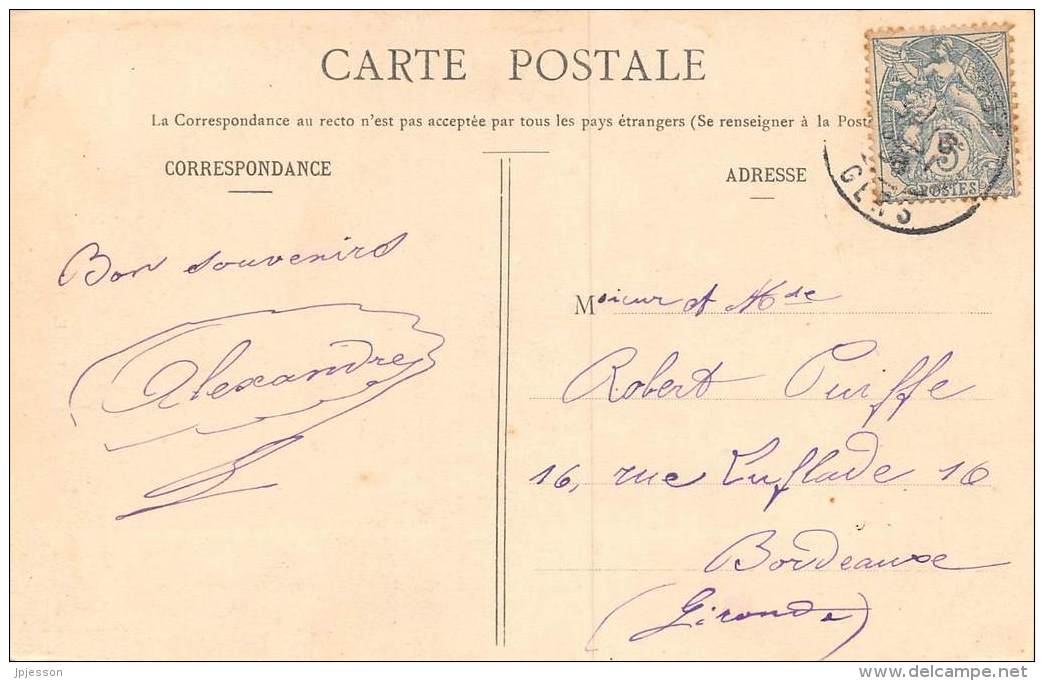 CARTE POSTALE
La Correspondance au recto n'est pas acceptée par tous les pays étrangers (Se renseigner à la Poste
CORRESPONDANCE
ADRESSE
5
POSTES
GERS
Bon souvenirs
Alexandre
Msieur et Mde
Robert Puiffe
16, rue Luflade 16
Bordeaux
(Gironde)
jpjesson
delcampe.net